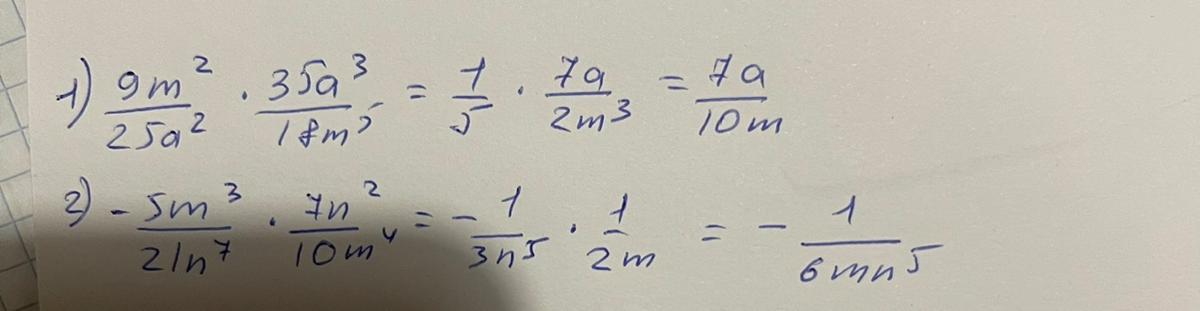 1) \frac{9m^2}{25a^2} \cdot \frac{35a^3}{18m^5} = \frac{1}{5} \cdot \frac{7a}{2m^3} = \frac{7a}{10m}
2) -\frac{5m^3}{21n^7} \cdot \frac{7n^2}{10m^4} = -\frac{1}{3n^5} \cdot \frac{1}{2m} = -\frac{1}{6mn^5}